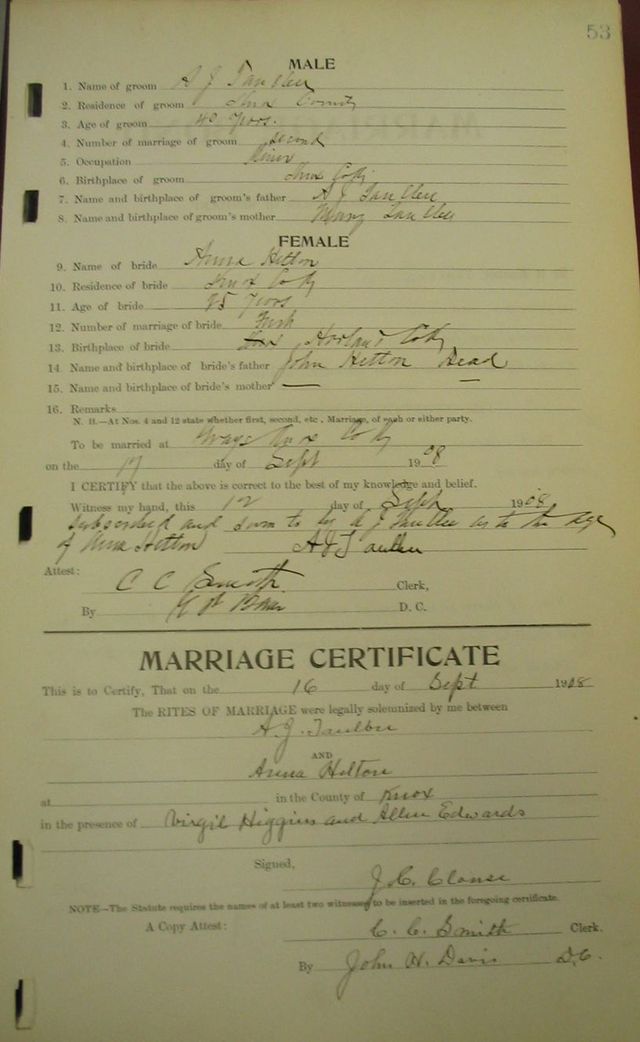 53
MALE
1. Name of groom A J Taulbee
2. Residence of groom Knox County
3. Age of groom 40 Years.
4. Number of marriage of groom second
5. Occupation Miner
6. Birthplace of groom Knox Co Ky
7. Name and birthplace of groom's father A J Taulbee
8. Name and birthplace of groom's mother Mary Taulbee
FEMALE
9. Name of bride Anna Helton
10. Residence of bride Knox Co Ky
11. Age of bride 25 Years
12. Number of marriage of bride First
13. Birthplace of bride Harlan Co Ky
14. Name and birthplace of bride's father John Helton Dead
15. Name and birthplace of bride's mother — —
16. Remarks
N. B.—At Nos. 4 and 12 state whether first, second, etc. Marriage, of each or either party.
To be married at Knox Co Ky
on the 17 day of Sept 1908
I CERTIFY that the above is correct to the best of my knowledge and belief.
Witness my hand, this 12 day of Sept 1908
Subscribed and sworn to by A J Taulbee as to the age
of Anna Helton A J Taulbee
Attest:
C C Smith Clerk,
By D. C.
MARRIAGE CERTIFICATE
This is to Certify, That on the 16 day of Sept 1908
The RITES OF MARRIAGE were legally solemnized by me between
A. J. Taulbee
AND
Anna Helton
at in the County of Knox
in the presence of Virgil Higgins and Allen Edwards
Signed,
J. C. Clouse
NOTE—The Statute requires the names of at least two witnesses to be inserted in the foregoing certificate.
A Copy Attest: C. C. Smith Clerk.
By John H. Davis D.C.